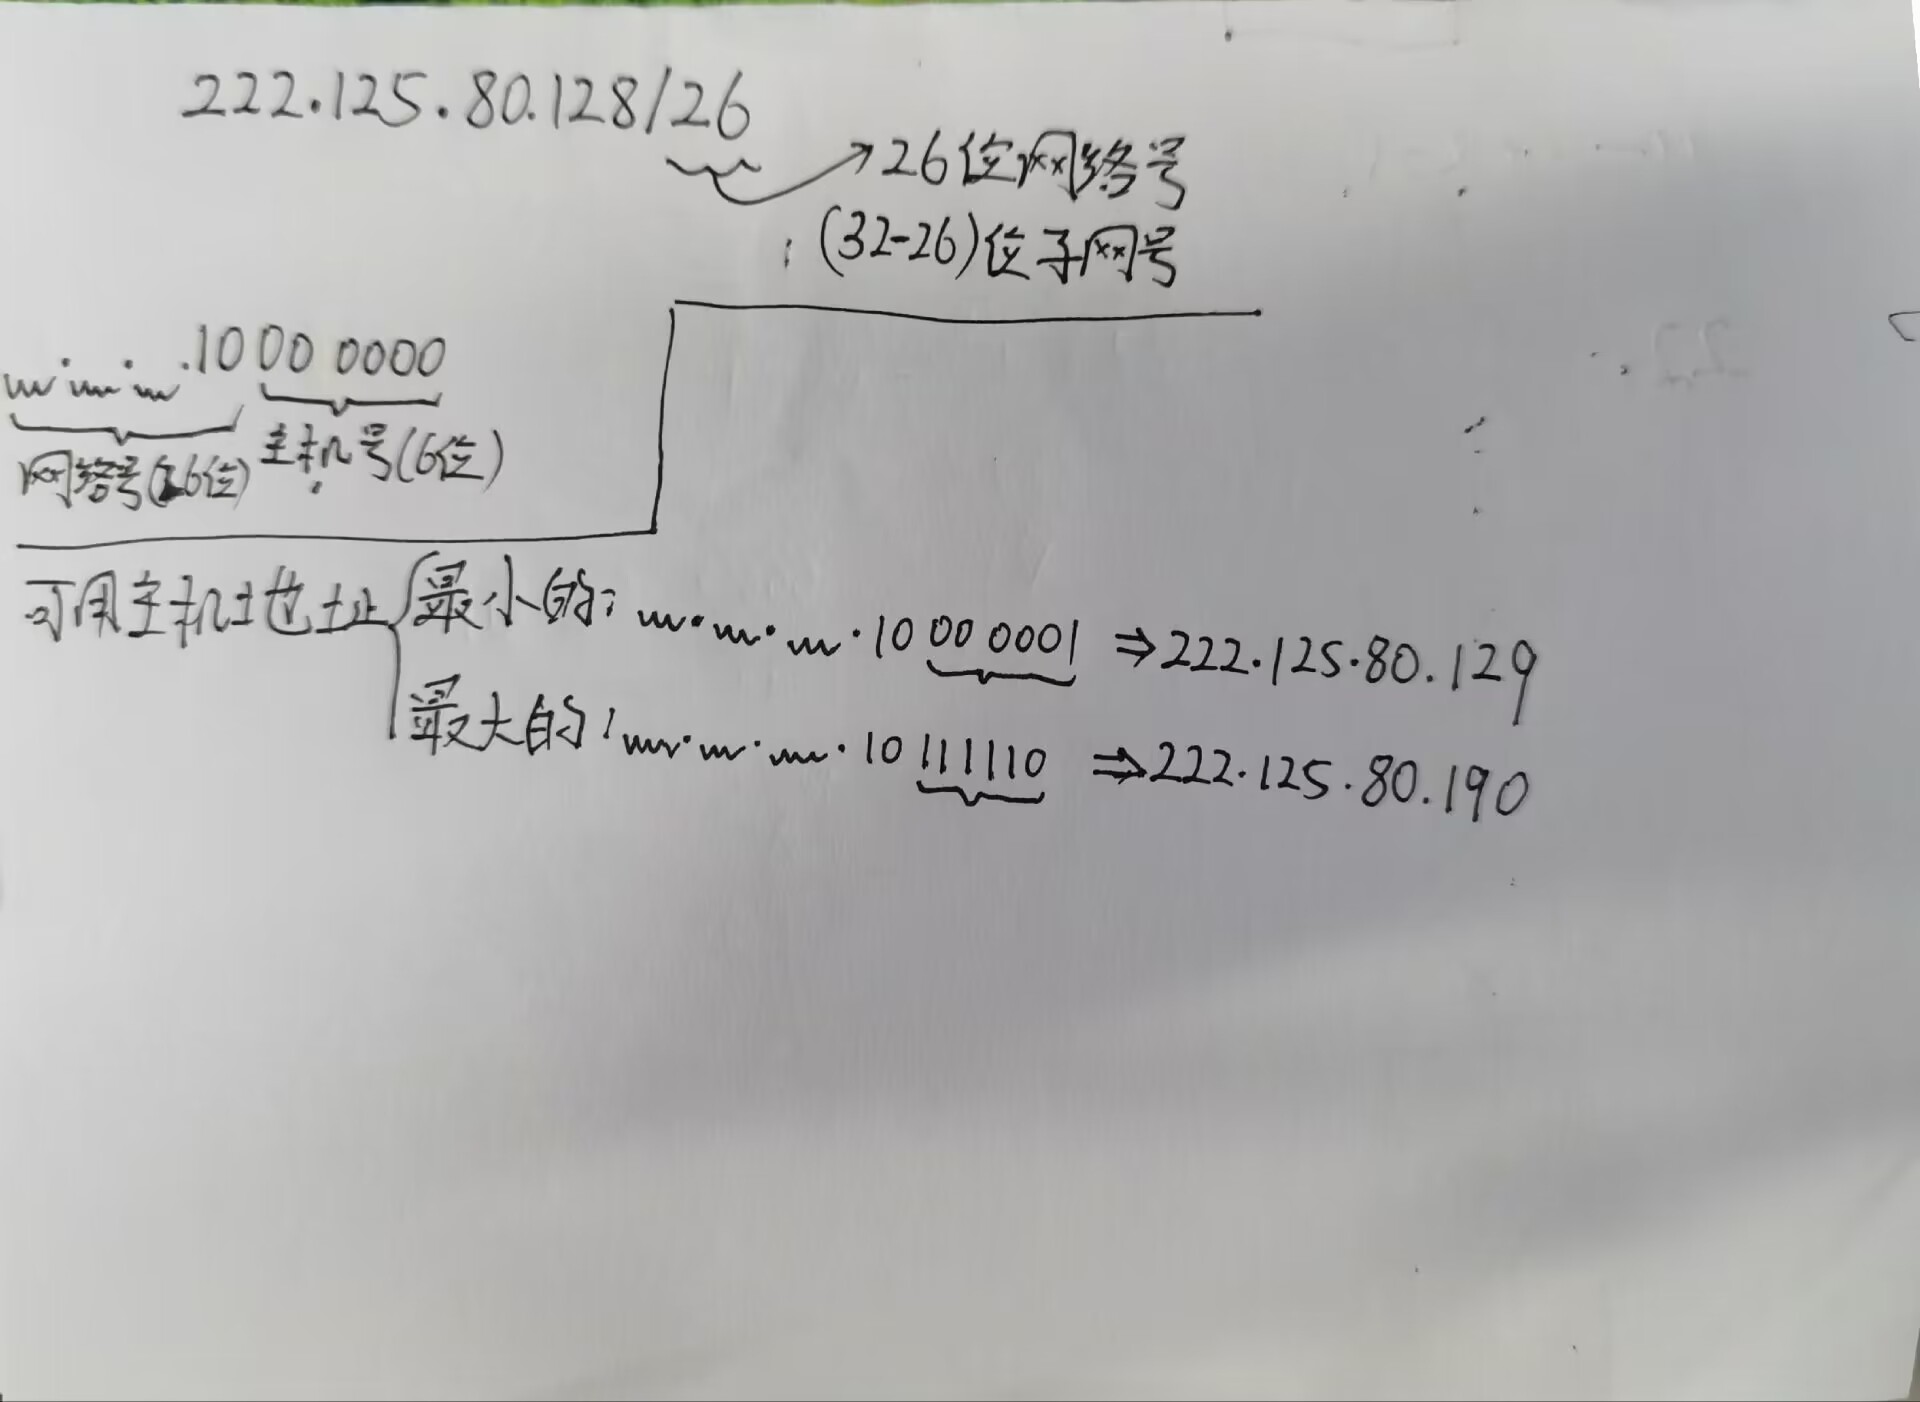 222.125.80.128/26
26位网络号
(32-26)位子网号
.1000 0000
网络号(26位) 主机号(6位)
可用主机地址
最小的: .10 00 0001 ⇒222.125.80.129
最大的: .10 111110 ⇒222.125.80.190